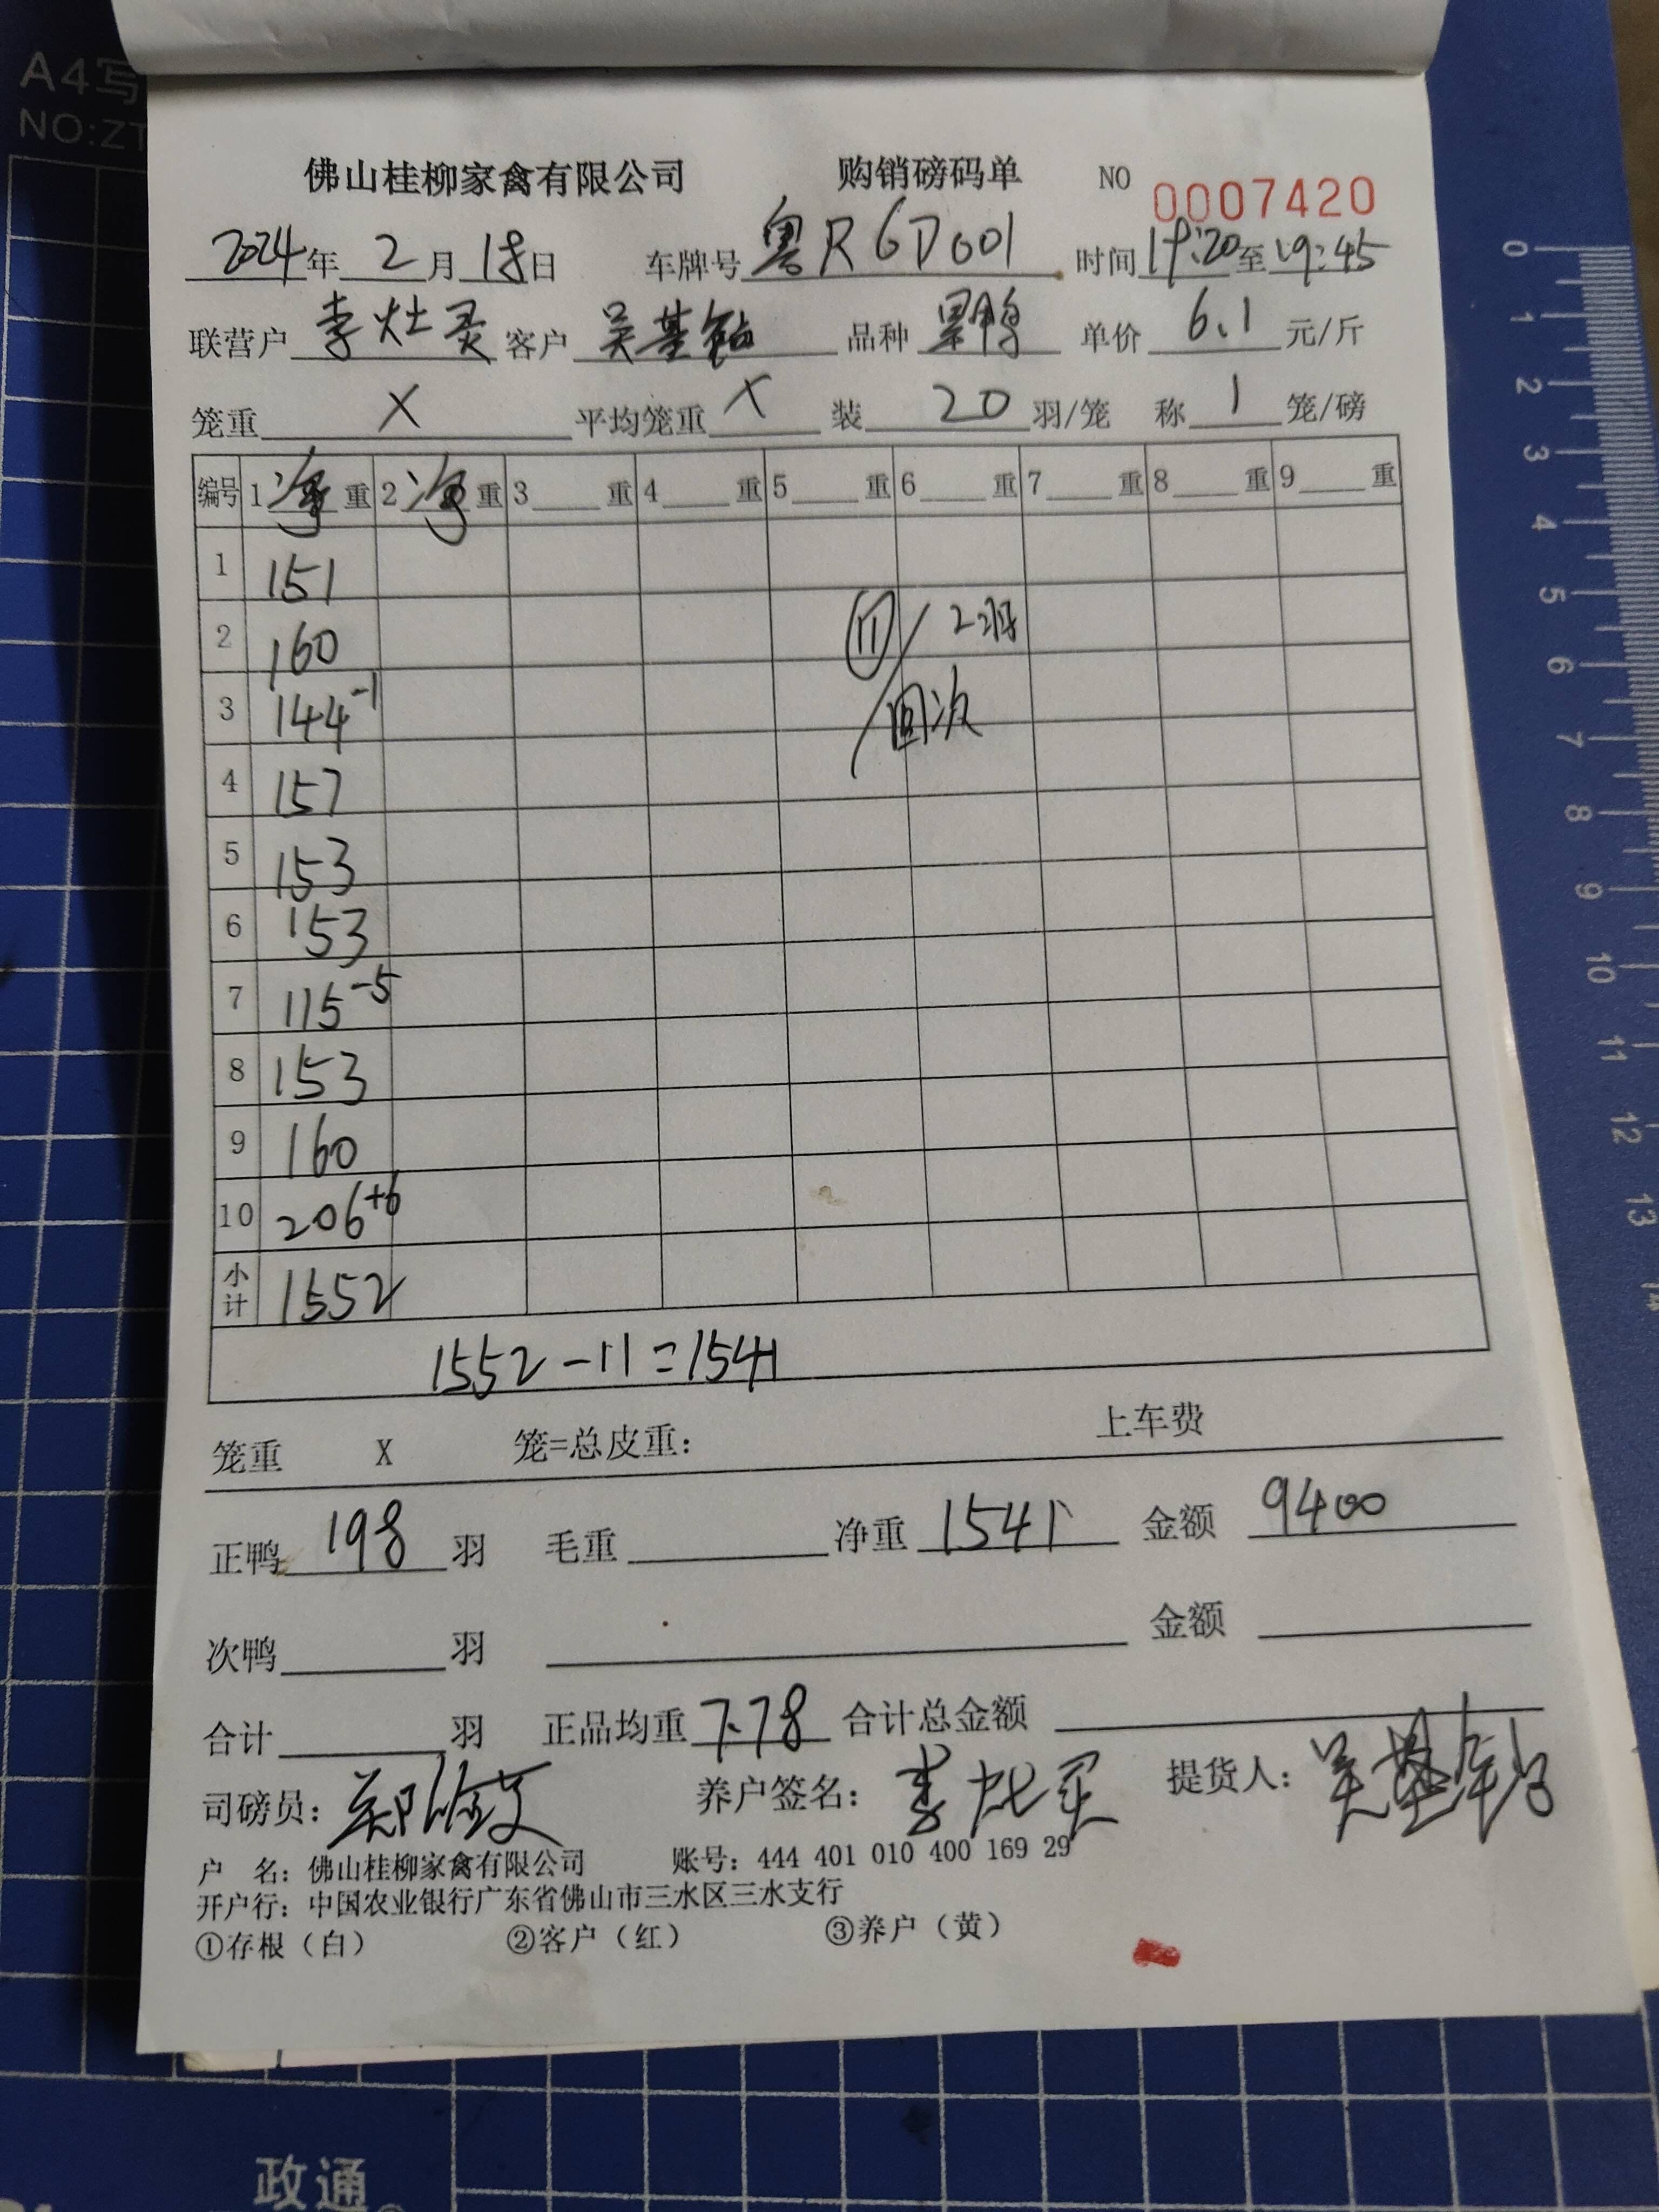 A4写
NO:ZT
佛山桂柳家禽有限公司 购销磅码单 NO 0007420
2024年 2月 18日 车牌号 粤R6D001 时间 19:20至19:45
联营户 李灶 客户 吴基钻 品种 鸭 单价 6.1 元/斤
笼重 X 平均笼重 X 装 20 羽/笼 称 1 笼/磅
编号 1净重 2净重 3重 4重 5重 6重 7重 8重 9重
1 151
2 160 11/2班
3 144-1 回次
4 157
5 153
6 153
7 115-5
8 153
9 160
10 206+6
小计 1552
1552-11=1541
笼重 X 笼=总皮重: 上车费
正鸭 198 羽 毛重 净重 1541 金额 9400
次鸭 羽 金额
合计 羽 正品均重 7.78 合计总金额
司磅员: 养户签名: 李 提货人: 吴基钻
户 名: 佛山桂柳家禽有限公司 账号: 444 401 010 400 169 29
开户行: 中国农业银行广东省佛山市三水区三水支行
①存根（白） ②客户（红） ③养户（黄）
0 1 2 3 4 5 6 7 8 9 10 11 12 13 14
政通